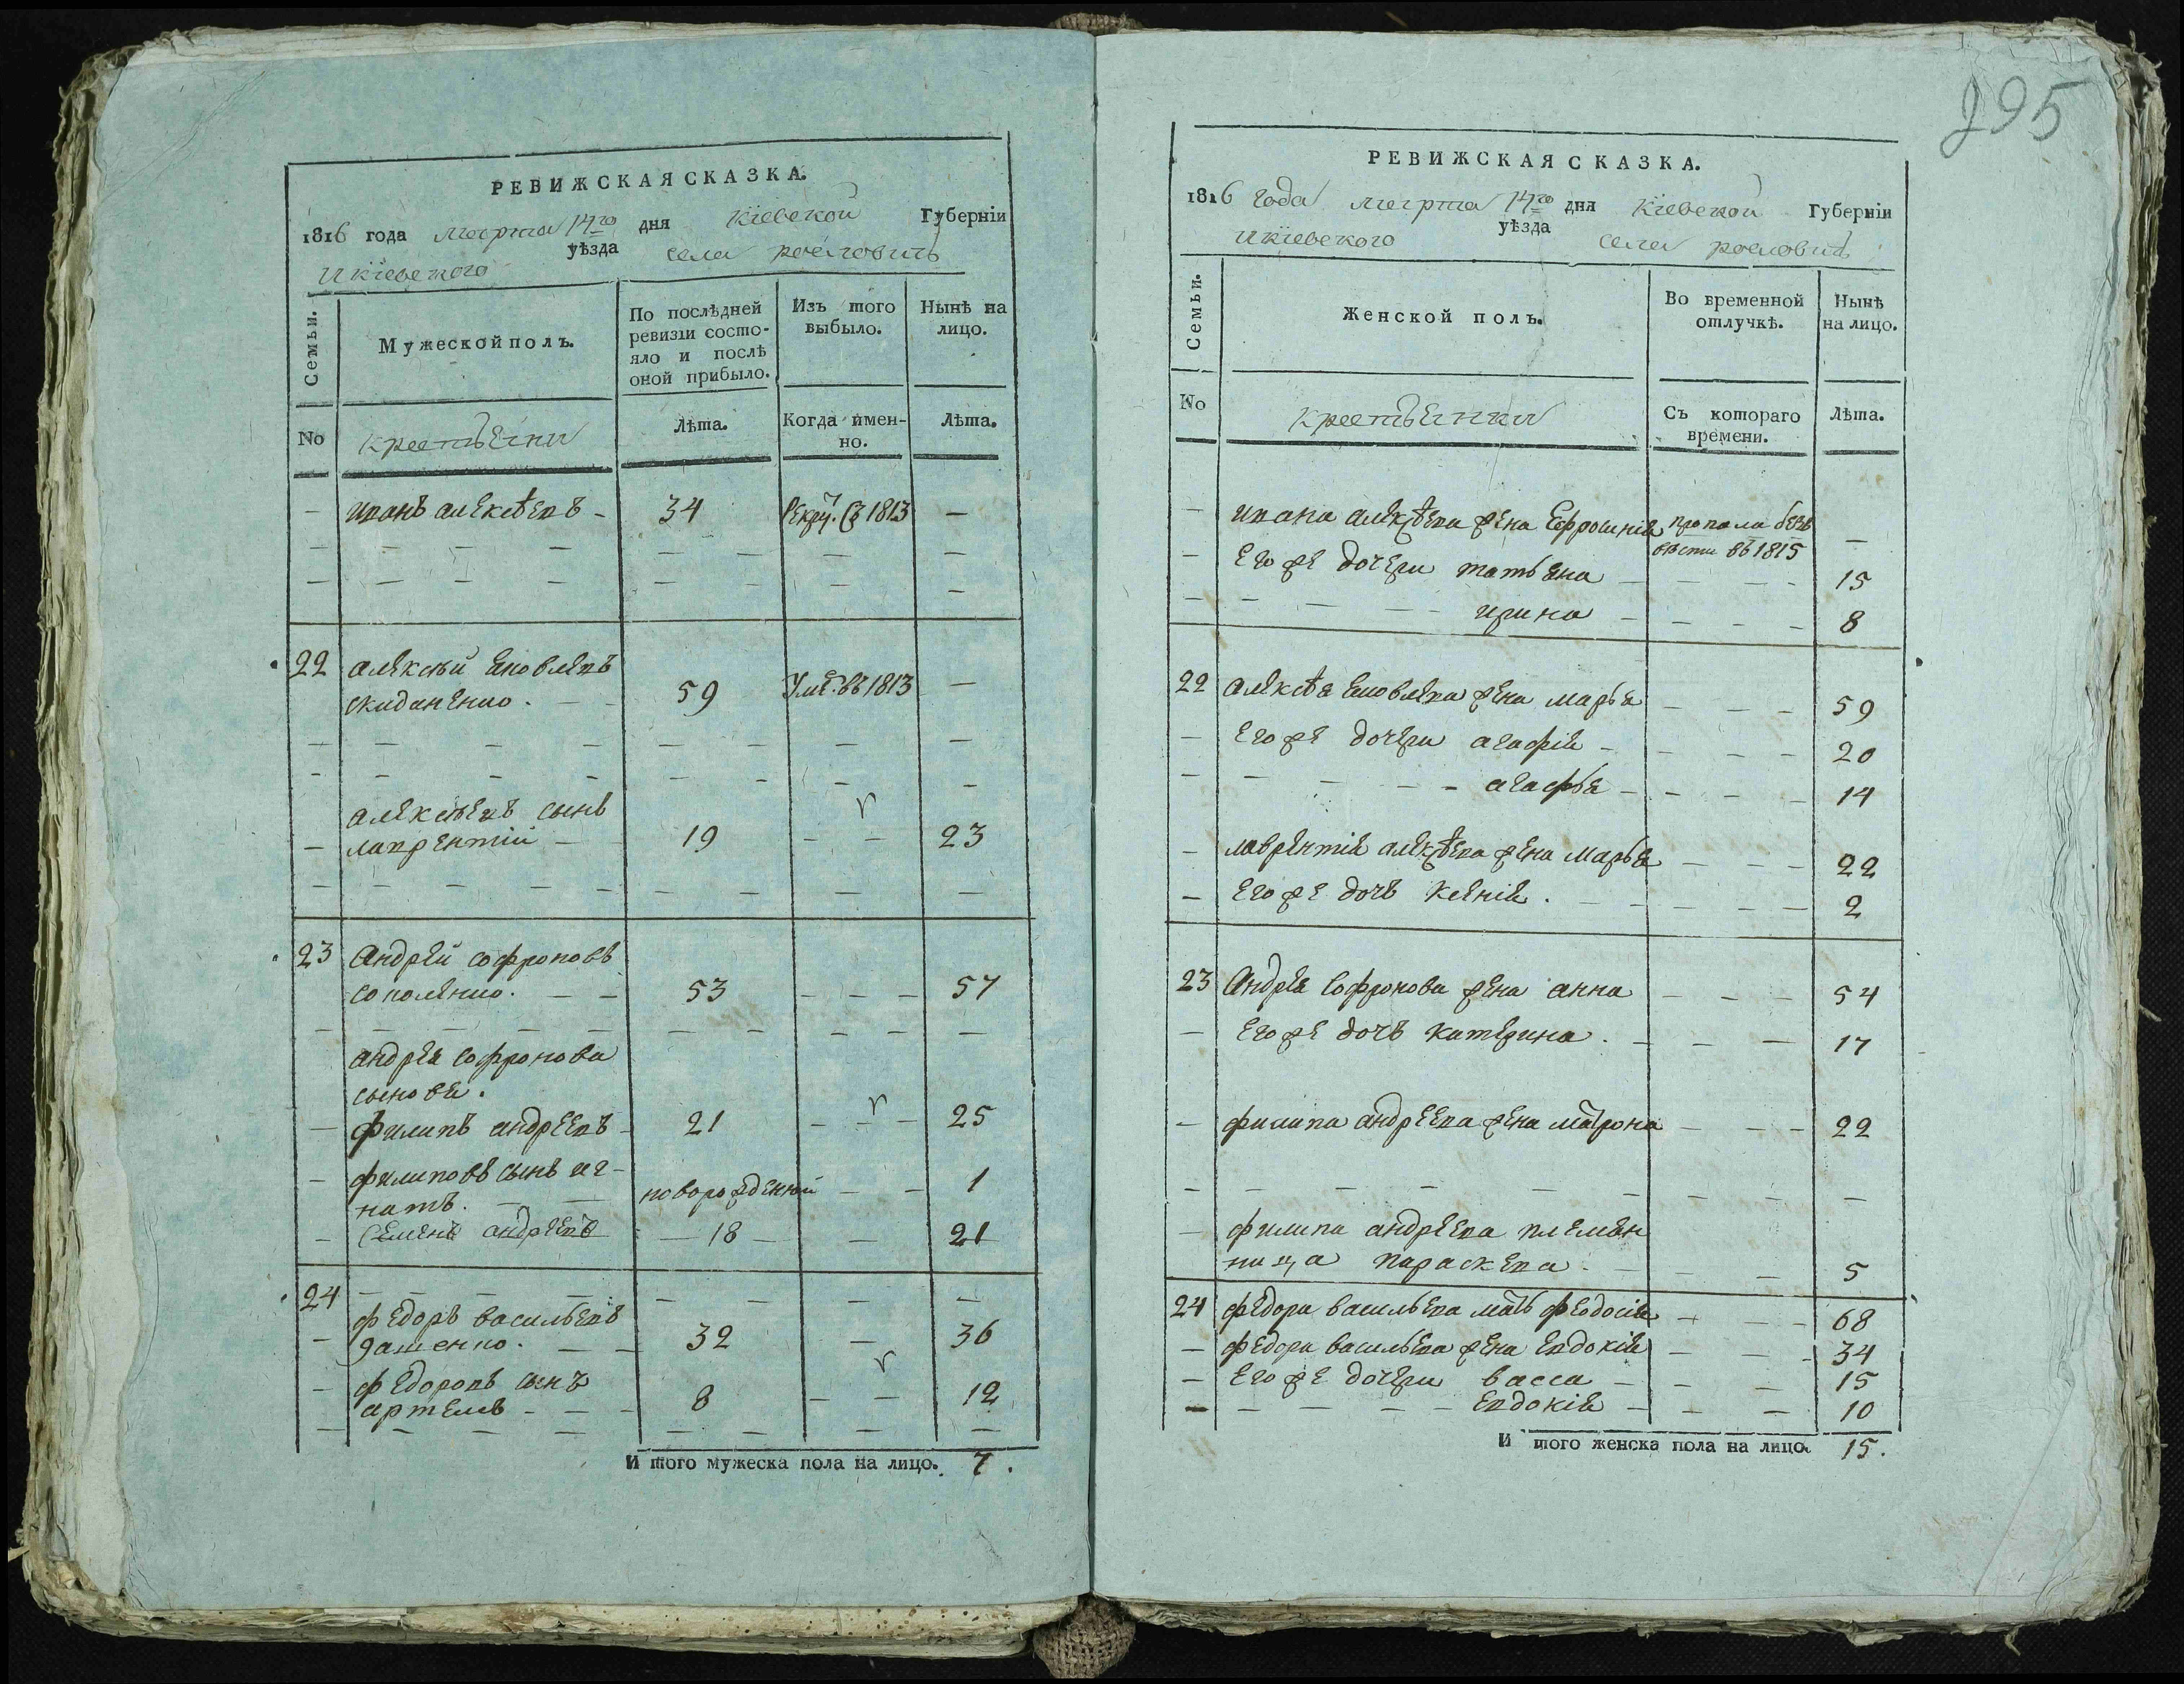 РЕВИЖСКАЯ СКАЗКА.
1816 года марта 14го дня Кіевской Губерніи
и кіевского уѣзда села рославичь
Семьи.
Мужеской полъ.
По послѣдней ревизіи состояло и послѣ оной прибыло.
Изъ того выбыло.
Нынѣ на лицо.
No
крестьяни
Лѣта.
Когда имен-но.
Лѣта.
иванъ алексѣевъ 34 Рекру. въ 1813
22 алексѣй яковлевъ
скиданенко. 59 Уме. въ 1813
алексѣевъ сынъ
лаврентій 19 23
23 Андрей софроновъ
соколенко. 53 57
андрея софронова
сыновя.
филипъ андреевъ 21 25
филиповъ сынъ иг-
натъ. новорожденный 1
Семенъ андреевъ 18 21
24
федоръ васильевъ
дашенко. 32 36
федоровъ сынъ
артемъ 8 12
И того мужеска пола на лицо. 7.
295
РЕВИЖСКАЯ СКАЗКА.
1816 года марта 14го дня Кіевской Губерніи
и кіевского уѣзда села рославичь
Семьи.
Женской полъ.
Во временной отлучкѣ.
Нынѣ на лицо.
No
крестьянки
Съ котораго времени.
Лѣта.
ивана алексѣева жена Ефросинія пропала безъ
вѣсти въ 1815
Его же дочери татьяна 15
ирина 8
22 алексѣя яковлева жена марья 59
Его же дочери агафія 20
агафья 14
лаврентія алексѣева жена марья 22
Его же дочь Ксенія. 2
23 Андрея Софронова жена анна 54
Его же дочь катерина. 17
филипа андреева жена матрона 22
филипа андреева племян
ница параскева 5
24 федора васильева мать феодосія 68
федора васильева жена евдокія 34
Его же дочери васса 15
евдокія 10
И того женска пола на лицо. 15.